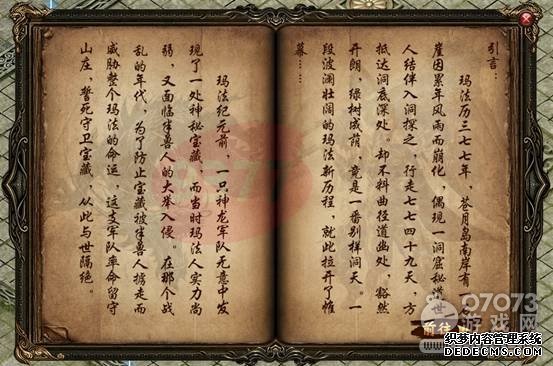 引言：
玛法历三七七年，苍月岛南岸有
崖因累年风雨而崩化，偶现一洞窟秘道 世
人结伴入洞探之，行走七七四十九天，方
抵达洞底深处。却不料曲径道幽处，豁然
开朗，绿树成荫，竟是一番别样洞天。一
段波澜壮阔的玛法新历程，就此拉开了帷
幕……
玛法纪元前，一只神龙军队无意中发
现了一处神秘宝藏，而当时玛法人实力尚
弱，又面临半兽人的大举入侵。在那个战
乱的年代，为了防止宝藏被半兽人掳走而
威胁整个玛法的命运，这支军队奉命留守
山庄，誓死守卫宝藏，从此与世隔绝。
前往
07073
游戏网
织梦内容管理系统
DEDECMS.COM